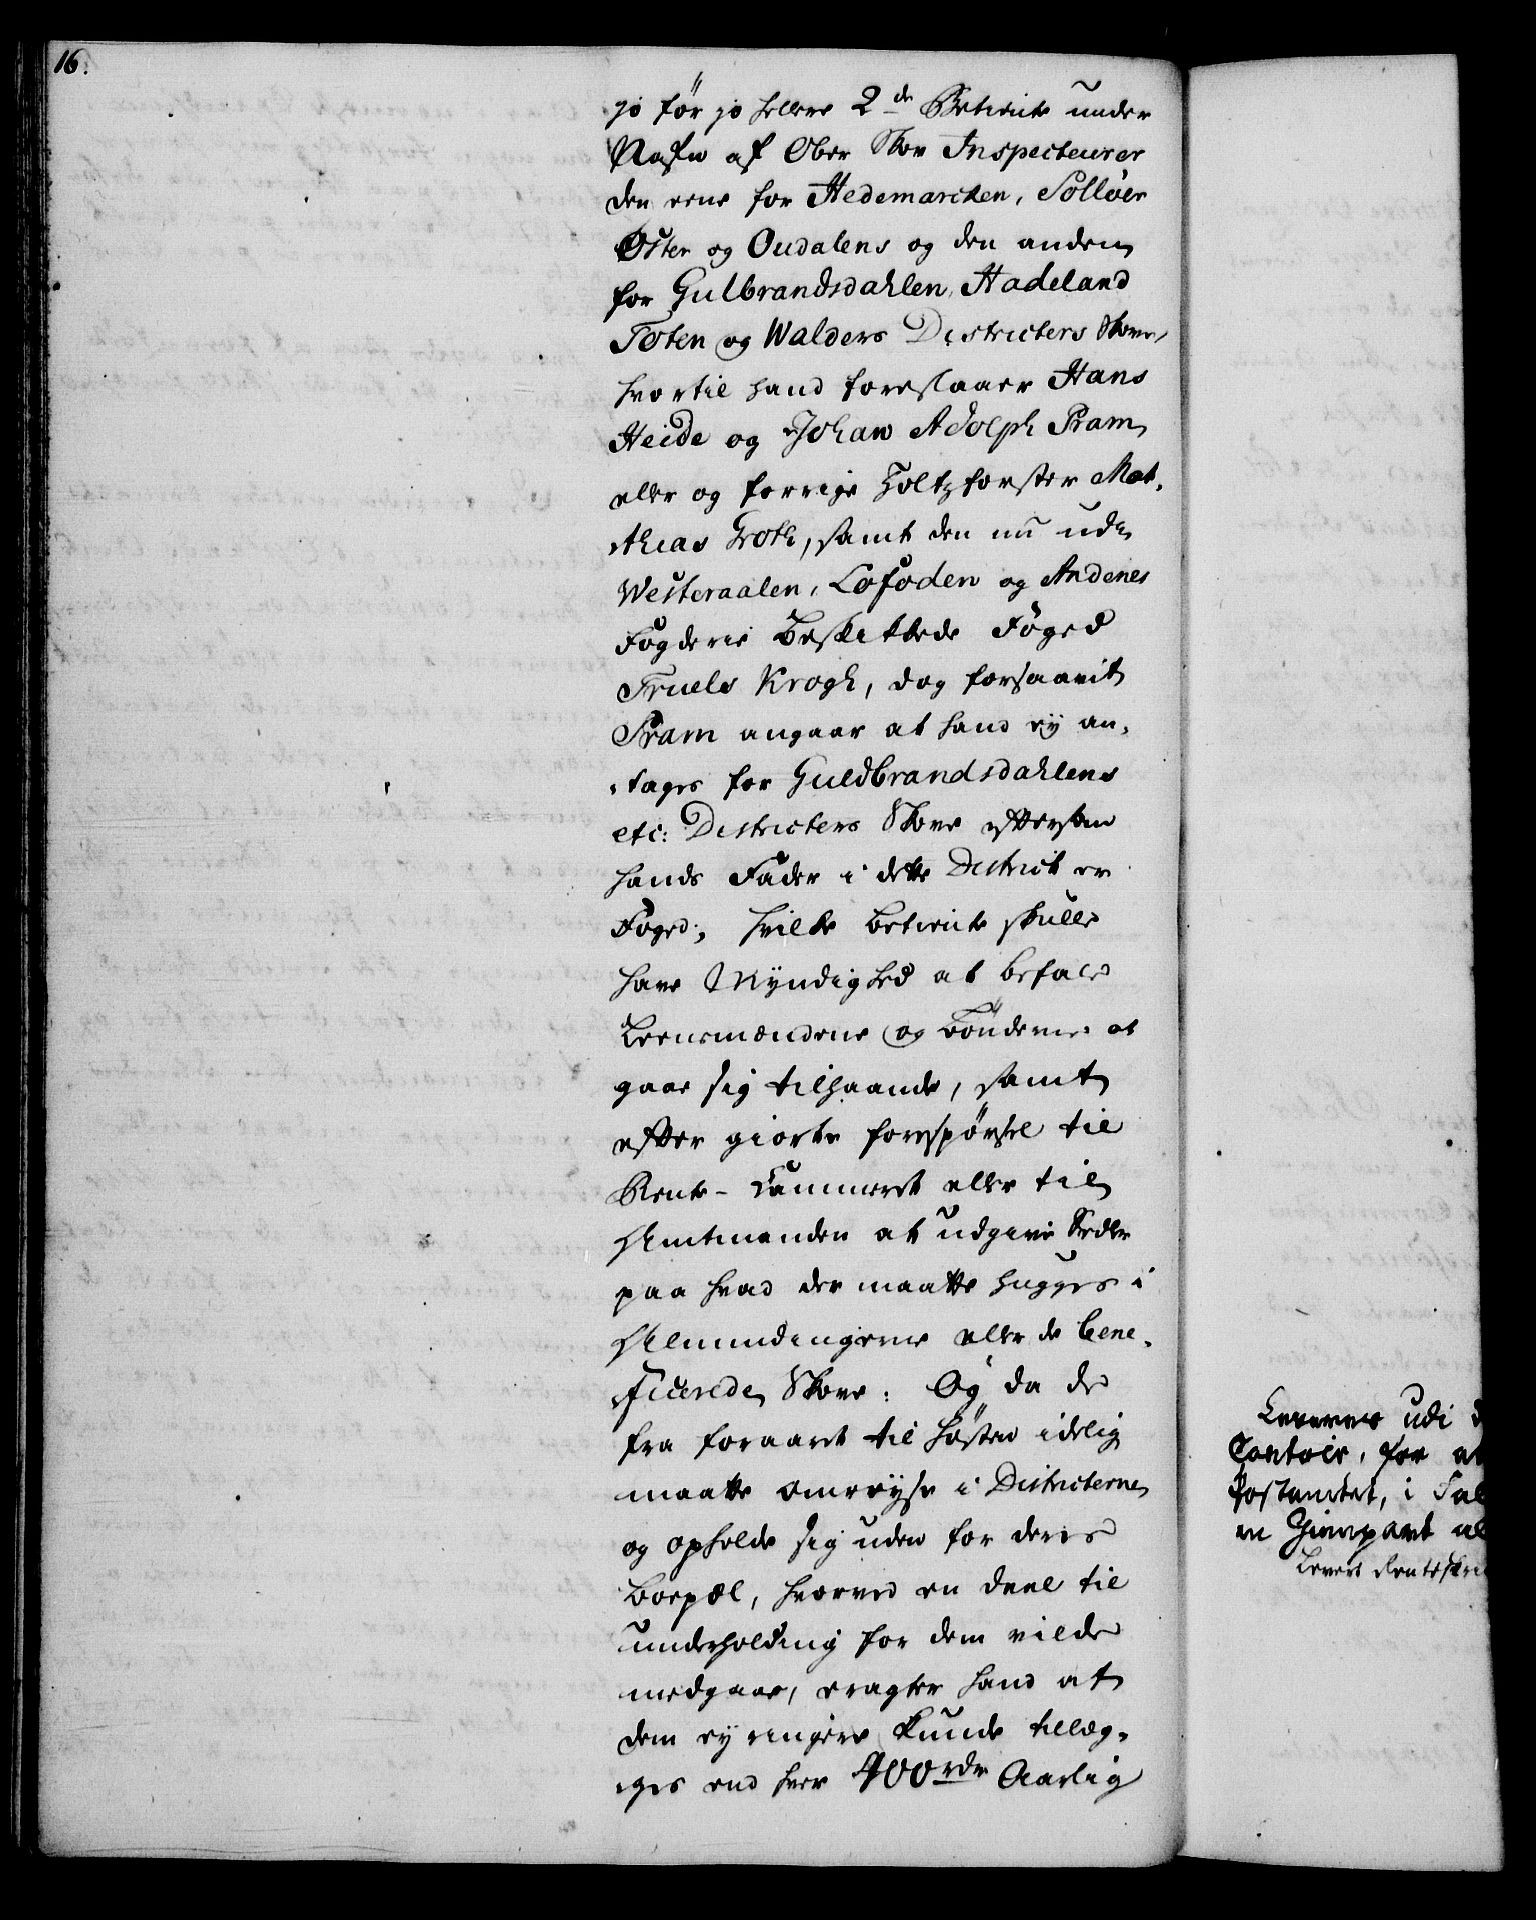 16.
jo för jo hellere 2de Betiente under
Nafn af Ober Skov Inspecteurer
den eene for Hedemarcken, Solløer
Øster og Oudalens og den anden
for Gulbrandsdahlen, Hadeland
Toten og Walders Districters Skove,
hvortil hand foreslaaer Hans
Heide og Johan Adolph Pram
eller og forrige Holtzforster Mat,
thias Groth, samt den nu udi
Westeraalen, Lofoden og Andenes
Fogderie Beskikkede Foged
Truels Krogh, dog forsaavit
Pram angaar at hand ey an,
tages for Guldbrandsdahlens
etc: Districters Skove eftersom
hands Fader i dette District er
Foged; hvilke betiente skulle
have Myndighed at befale
Leensmændene og Bönderne at
gaae sig tilhaande, samt
efter giorte forespörsel til
Rente-Cammeret eller til
Amtmanden at udgive Sedler
paa hvad der maatte hugges i
Almindingerne eller de bene,
ficerede Skove: Og da de
fra foraaret til høsten idelig
maatte omreyse i Districterne
og opholde sig uden for deris
boepæl, hvorved en deel til
underholding for dem vilde
medgaae, eragter hand at
dem ey ringere kunde tillæg,
ges end hver 400 rdr Aarlig
Leveres udi
Contoir, for at
Postamtet, i
en Gienpart
Levert Renteskri